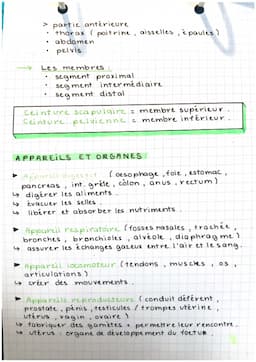 > partie antérieure
• thorax ( poitrine , aisselles , épaules )
• abdomen
• pelvis
→ Les membres :
• segment proximal
• segment intermédiaire
• segment distal
Ceinture scapulaire = membre supérieur .
Ceinture pelvienne = membre inférieur .
APPAREILS ET ORGANES
► Appareil digestif ( oesophage , foie , estomac ,
pancreas , int. grêle , côlon , anus , rectum )
↳ digérer les aliments .
↳ évacuer les selles .
↳ libérer et absorber les nutriments .
► Appareil respiratoire ( fosses nasales , trachée ,
bronches , bronchioles , alvéole , diaphragme )
↳ assurer les échanges gazeux entre l'air et le sang .
► Appareil locomoteur ( tendons , muscles , os ,
articulations )
↳ créer des mouvements .
► Appareils reproducteurs ( conduit déférent ,
prostate , pénis , testicules / trompes utérine ,
utérus , vagin , ovaire )
↳ fabriquer des gamètes + permettre leur rencontre .
↳ utérus : organe de développement du foetus .